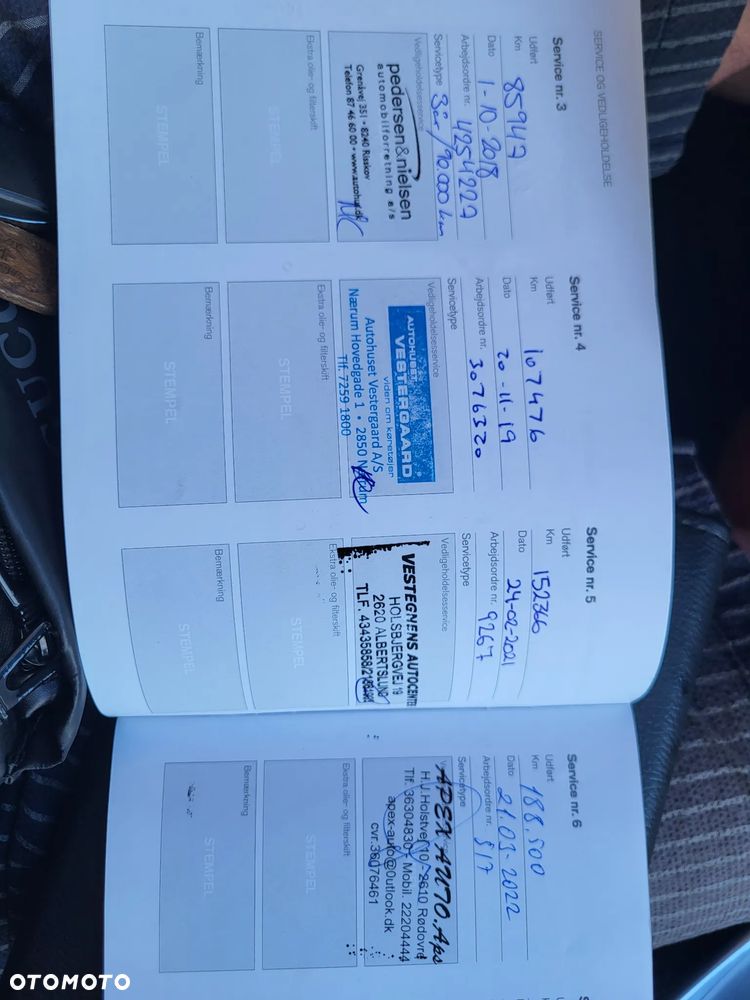 SERVICE OG VEDLIGEHOLDELSE
Service nr. 3
Udført
Km 85947
Dato 1-10-2018
Arbejdsordre nr. 4254227
Servicetype 3år/90.000 km
Vedligeholdelsesservice
pedersen&nielsen
automobilforretning a/s
Grenåvej 351 • 8240 Risskov
Telefon 87 46 60 00 • www.autohus.dk
Ekstra olie- og filterskift
STEMPEL
Bemærkning
STEMPEL
Service nr. 4
Udført
Km 107476
Dato 20-11-19
Arbejdsordre nr. 3076320
Servicetype
Vedligeholdelsesservice
AUTOHUSET
VESTERGAARD
viden om køretøjer
Autohuset Vestergaard A/S
Nærum Hovedgade 1 • 2850
Tlf. 7259 1800
Ekstra olie- og filterskift
STEMPEL
Bemærkning
STEMPEL
Service nr. 5
Udført
Km 152366
Dato 24-02-2021
Arbejdsordre nr. 9267
Servicetype
Vedligeholdelsesservice
VESTEGNENS AUTOCENTER
HOLSBJERGVEJ 19
2620 ALBERTSLUND
TLF. 43435858
Ekstra olie- og filterskift
STEMPEL
Bemærkning
STEMPEL
Service nr. 6
Udført
Km 188.500
Dato 21.03-2022
Arbejdsordre nr. 817
Servicetype
APEX AUTO. Aps
H.J.Holstvej 10 - 2610 Rødovre
Tlf. 36304830 - Mobil. 22204444
apex-auto@outlook.dk
cvr.36076461
Ekstra olie- og filterskift
STEMPEL
Bemærkning
STEMPEL
OTOMOTO